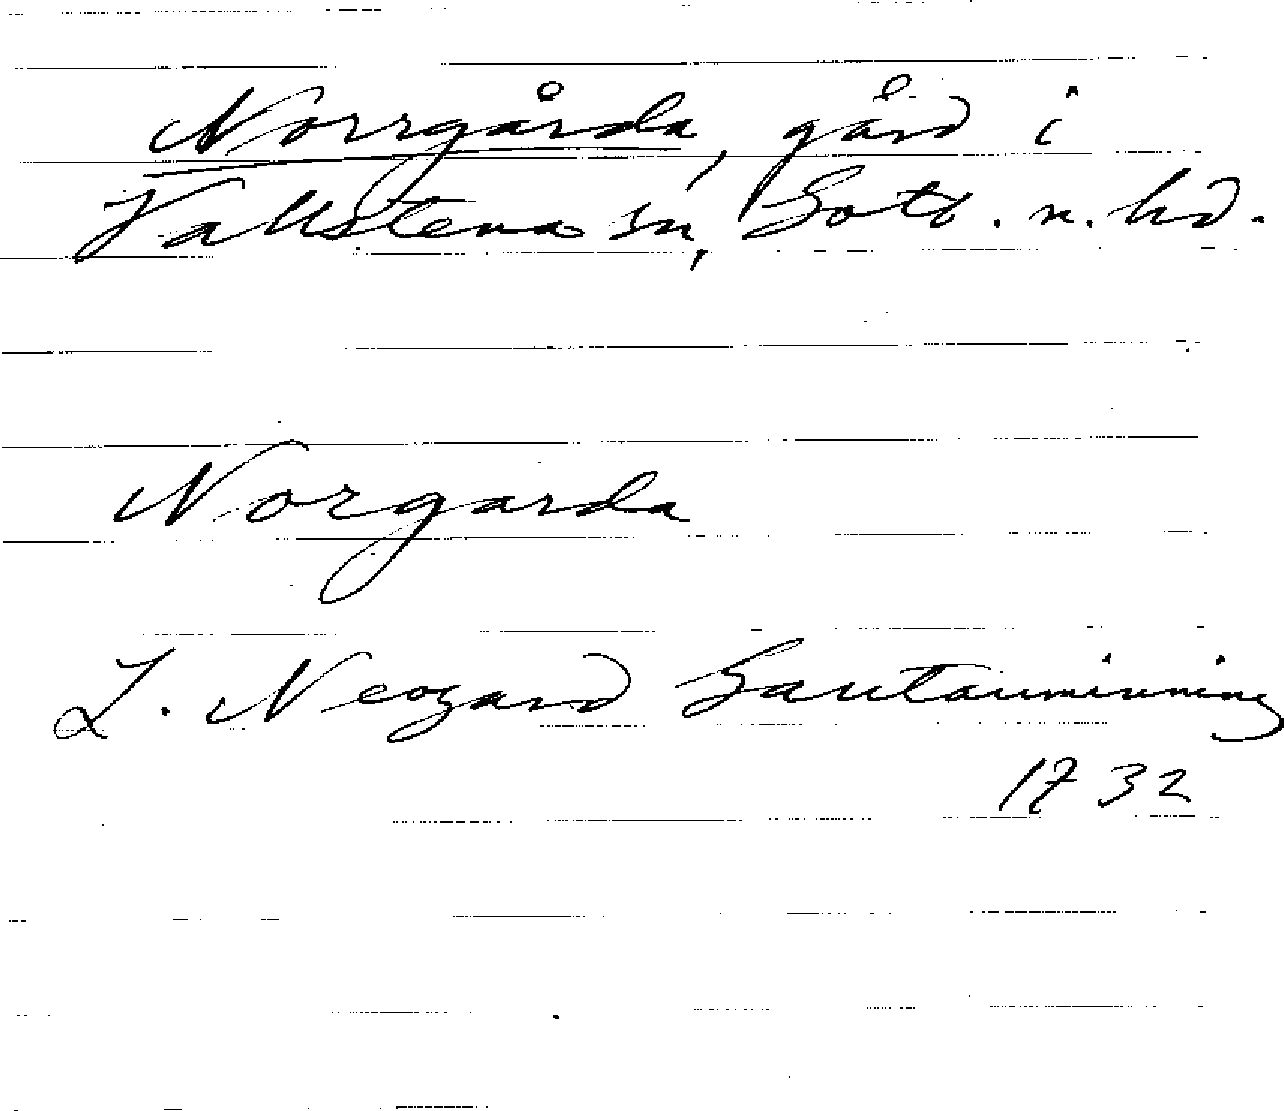 Norrgårda, gård i
Vallstena sn, Gotl. n. hd.
Norgarda
L. Neogard Gautauminning
1732